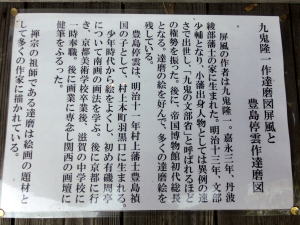 九鬼隆一作達磨図屏風と
豊島停雲作達磨図
屏風の作者は九鬼隆一。嘉永三年、丹波
綾部藩士の家に生まれた。明治十三年、文部
少輔となり、小藩出身人物としては異例の速
さで出世し、「九鬼の文部省」と呼ばれるほど
の権勢を振った。後に、帝国博物館初代総長
となる。達磨の絵を好んで、多くの達磨絵を
残している。
豊島停雲は、明治十一年村上藩士豊島禎
国の子として、村上本町羽黒口に生まれる。
少年時代から絵をよくし、初め有磯周亭
について南画の画法を学ぶ。後に京都に行
き、京都美術学校卒業後、滋賀の中学校に
一時奉職。後に画業に専念し関西の画壇に
健筆をふるった。
禅宗の祖師である達磨は絵画の題材と
して多くの作家に描かれている。